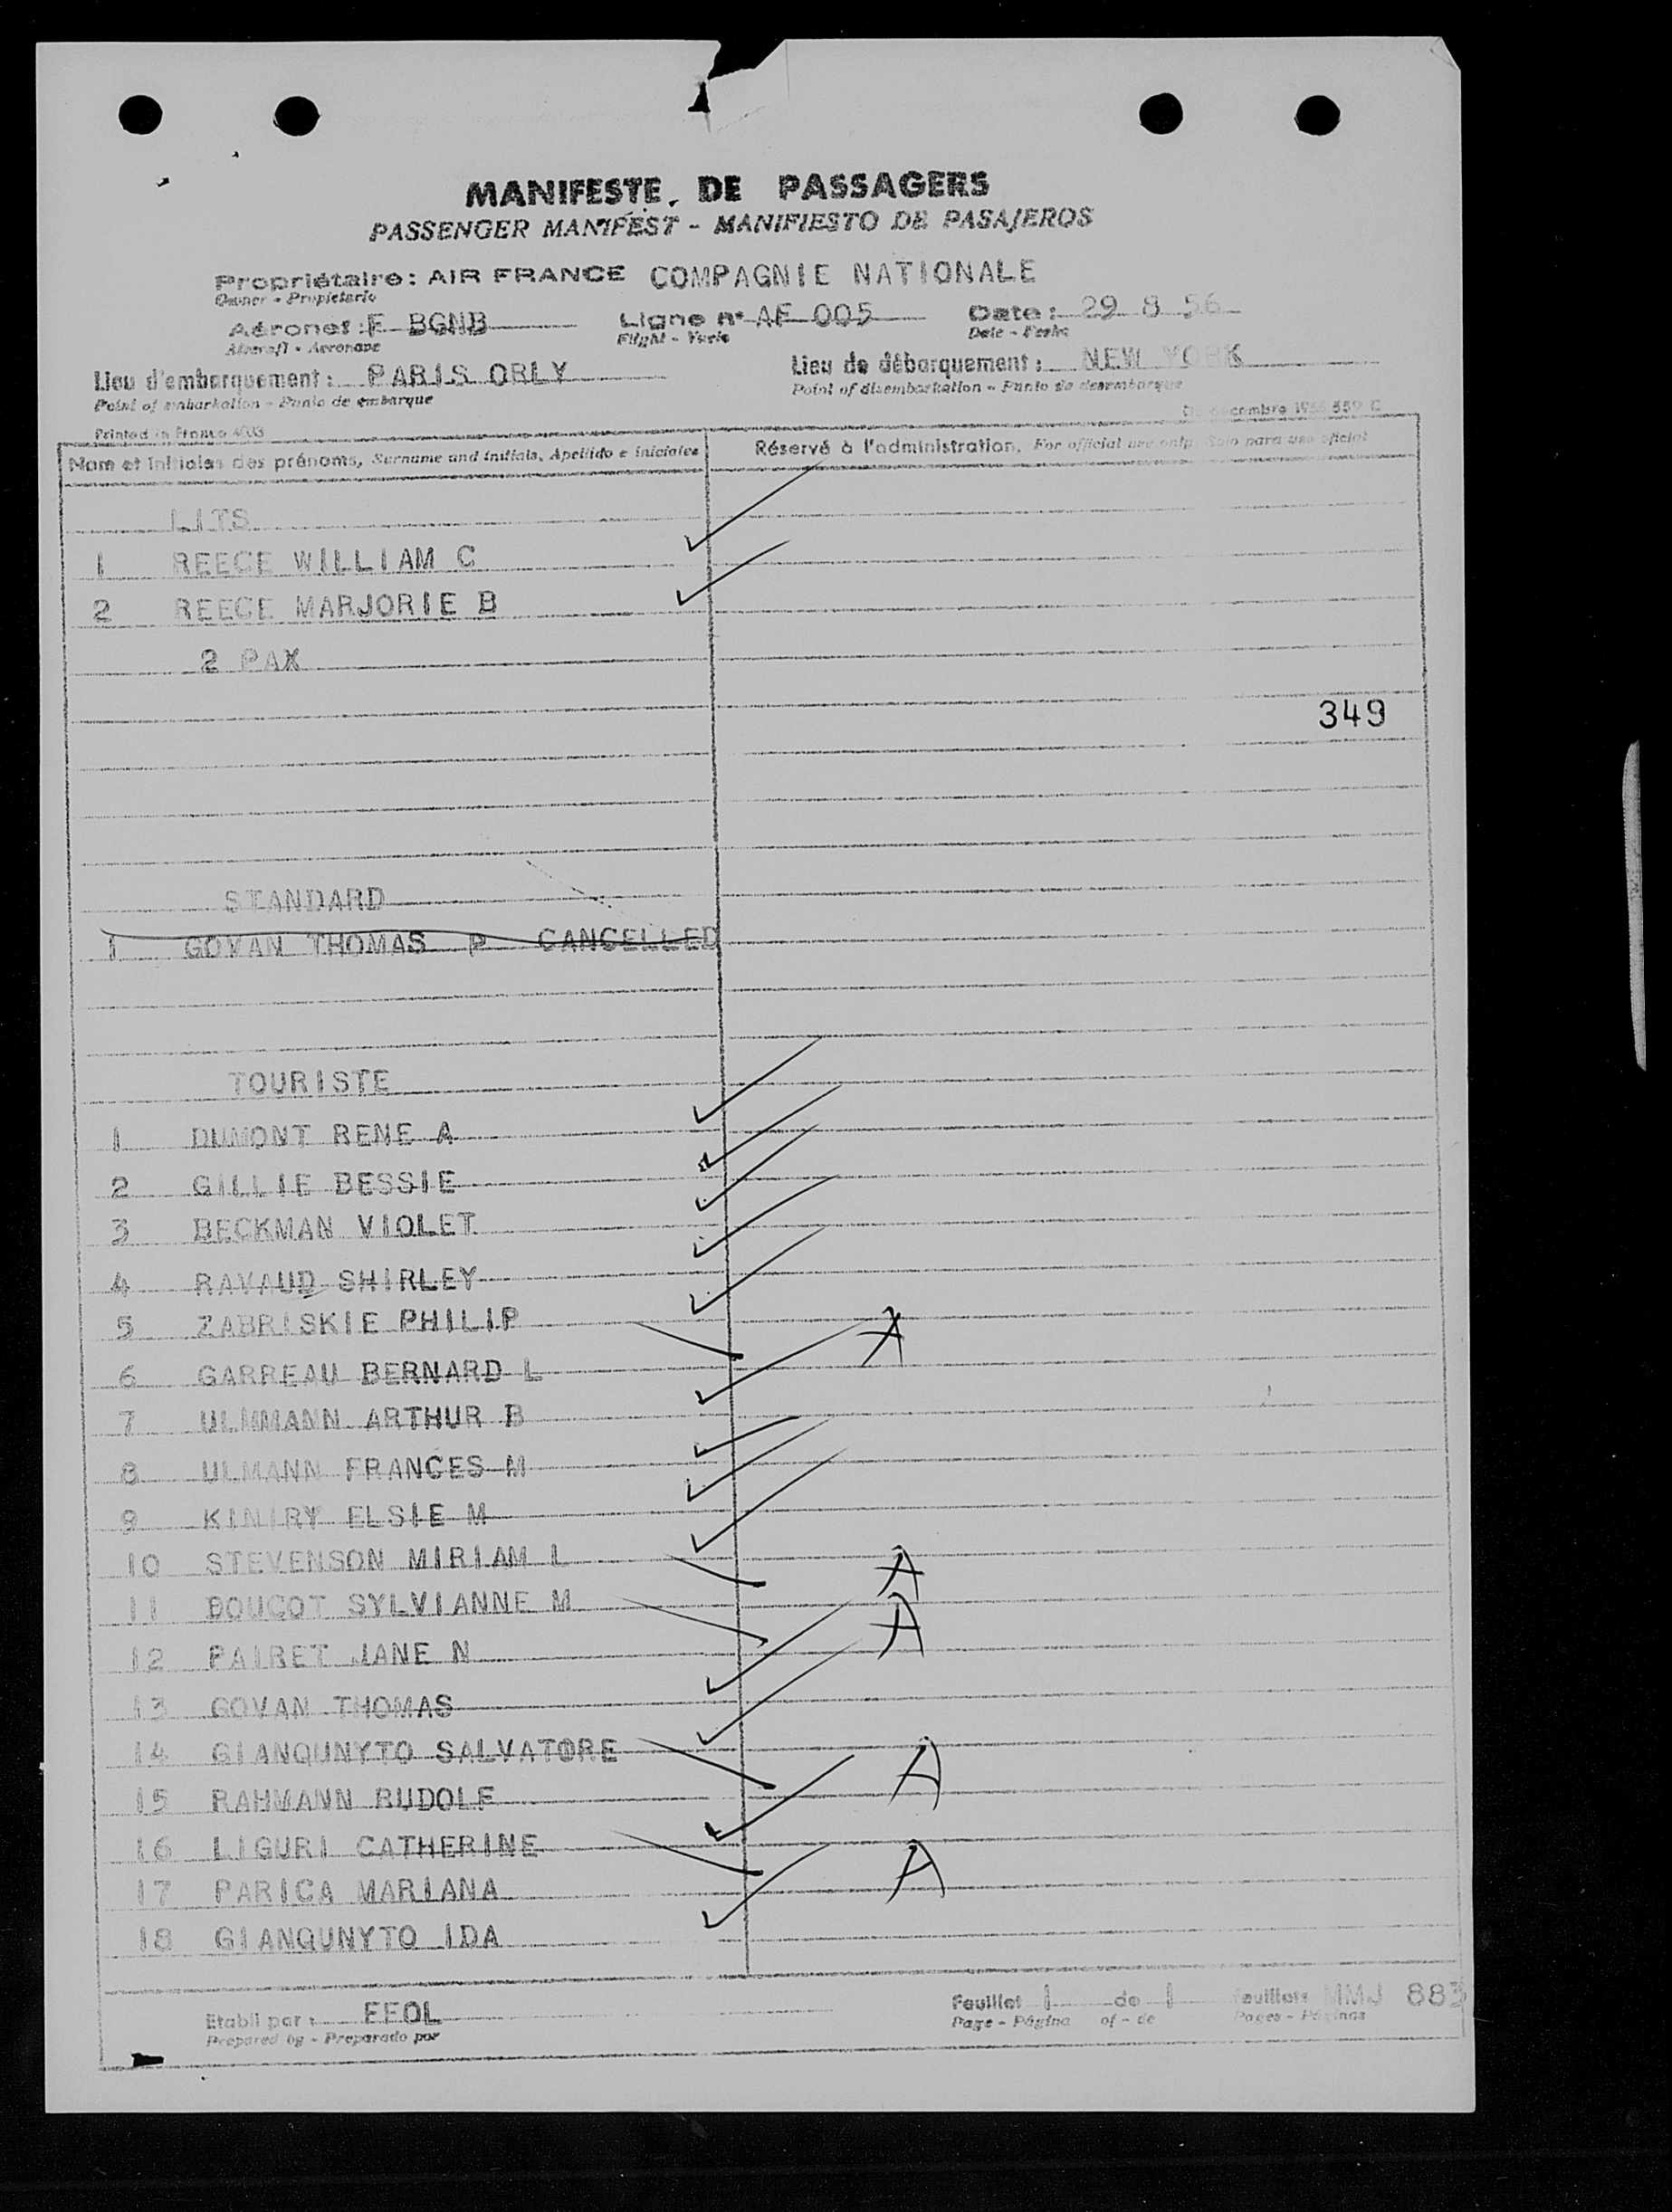 MANIFESTE DE PASSAGERS
PASSENGER MANIFEST - MANIFIESTO DE PASAJEROS
Propriétaire: AIR FRANCE COMPAGNIE NATIONALE
Owner - Propietario
Aéronef: F BGNB Ligne n° AF 005 Date: 29 8 56
Aircraft - Aeronave Flight - Vuelo Date - Fecha
Lieu d'embarquement: PARIS ORLY Lieu de débarquement: NEW YORK
Point of embarkation - Punto de embarque Point of disembarkation - Punto de desembarque
Printed in France
Nom et initiales des prénoms, Surname and initials, Apellido e iniciales Réservé à l'administration, For official use only Solo para uso oficial
LITS
1 REECE WILLIAM C
2 REECE MARJORIE B
2 PAX
349
STANDARD
1 GOVAN THOMAS P CANCELLED
TOURISTE
1 DUMONT RENE A
2 GILLIE BESSIE
3 BECKMAN VIOLET
4 RAVAUD SHIRLEY
5 ZABRISKIE PHILIP
A
6 GARREAU BERNARD L
7 ULMMANN ARTHUR B
8 ULMANN FRANCES M
9 KINIRY ELSIE M
10 STEVENSON MIRIAM L
A
11 BOUCOT SYLVIANNE M
A
12 PAIRET JANE N
13 GOVAN THOMAS
14 GIANQUNYTO SALVATORE
A
15 RAHMANN RUDOLF
16 LIGURI CATHERINE
A
17 PARICA MARIANA
18 GIANQUNYTO IDA
Etabli par: EFOL Feuillet 1 de 1 feuillets MMJ 883
Prepared by - Preparado por Page - Página of - de Pages - Páginas